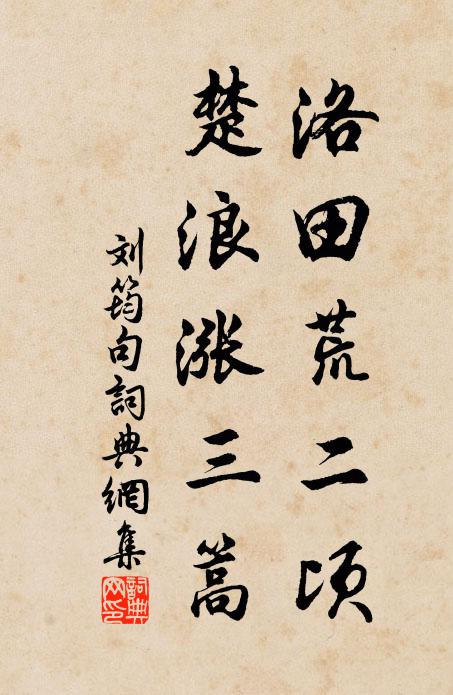 洛田荒二顷
楚浪涨三篙
刘筠句詞典網集
詞典